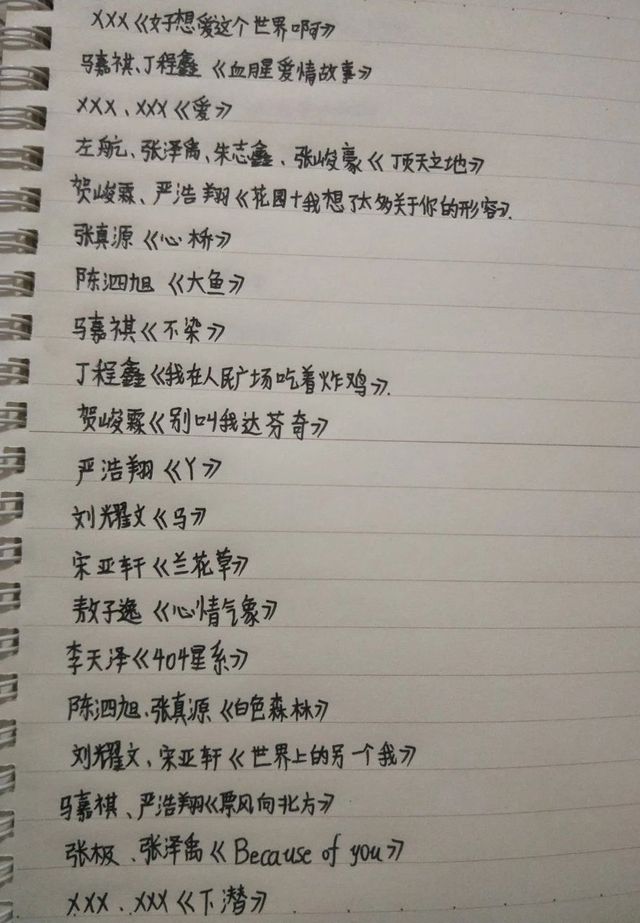 XXX《好想爱这个世界啊》
马嘉祺、丁程鑫《血腥爱情故事》
XXX、XXX《爱》
左航、张泽禹、朱志鑫、张峻豪《顶天立地》
贺峻霖、严浩翔《花园+我想了太多关于你的形容》.
张真源《心桥》
陈泗旭《大鱼》
马嘉祺《不染》
丁程鑫《我在人民广场吃着炸鸡》.
贺峻霖《别叫我达芬奇》
严浩翔《丫》
刘耀文《马》
宋亚轩《兰花草》
敖子逸《心情气象》
李天泽《404星系》
陈泗旭、张真源《白色森林》
刘耀文、宋亚轩《世界上的另一个我》
马嘉祺、严浩翔《原风向北方》
张极、张泽禹《Because of you》
XXX、XXX《下潜》